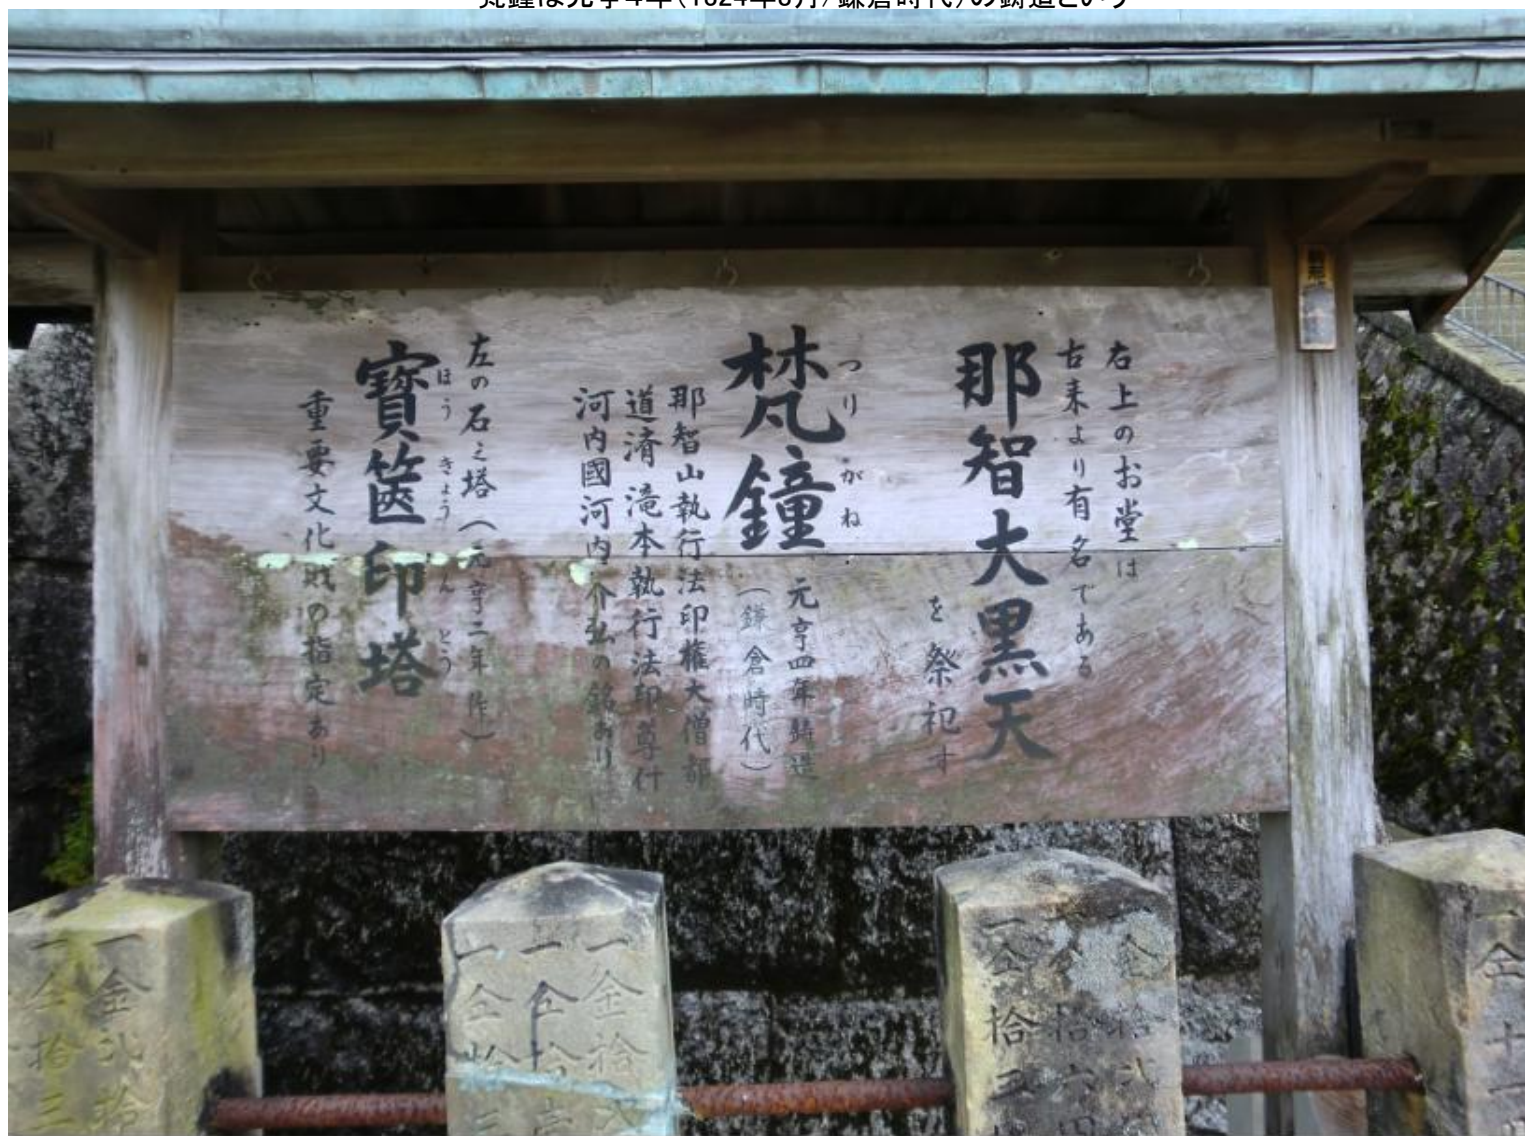 右上のお堂は
古来より有名である
那智大黒天
を祭祀す
梵鐘
つりがね
元亨四年鋳造
(鎌倉時代)
那智山執行法印権大僧都
道済滝本執行法印尊什
河内國河内介弘の銘あり
左の石之塔(元亨二年作)
寶篋印塔
ほうきょういんとう
重要文化財の指定あり
一金弐拾
一金拾三
一金拾
一金拾
一金拾三
金拾
金拾六
一金拾五
一金十